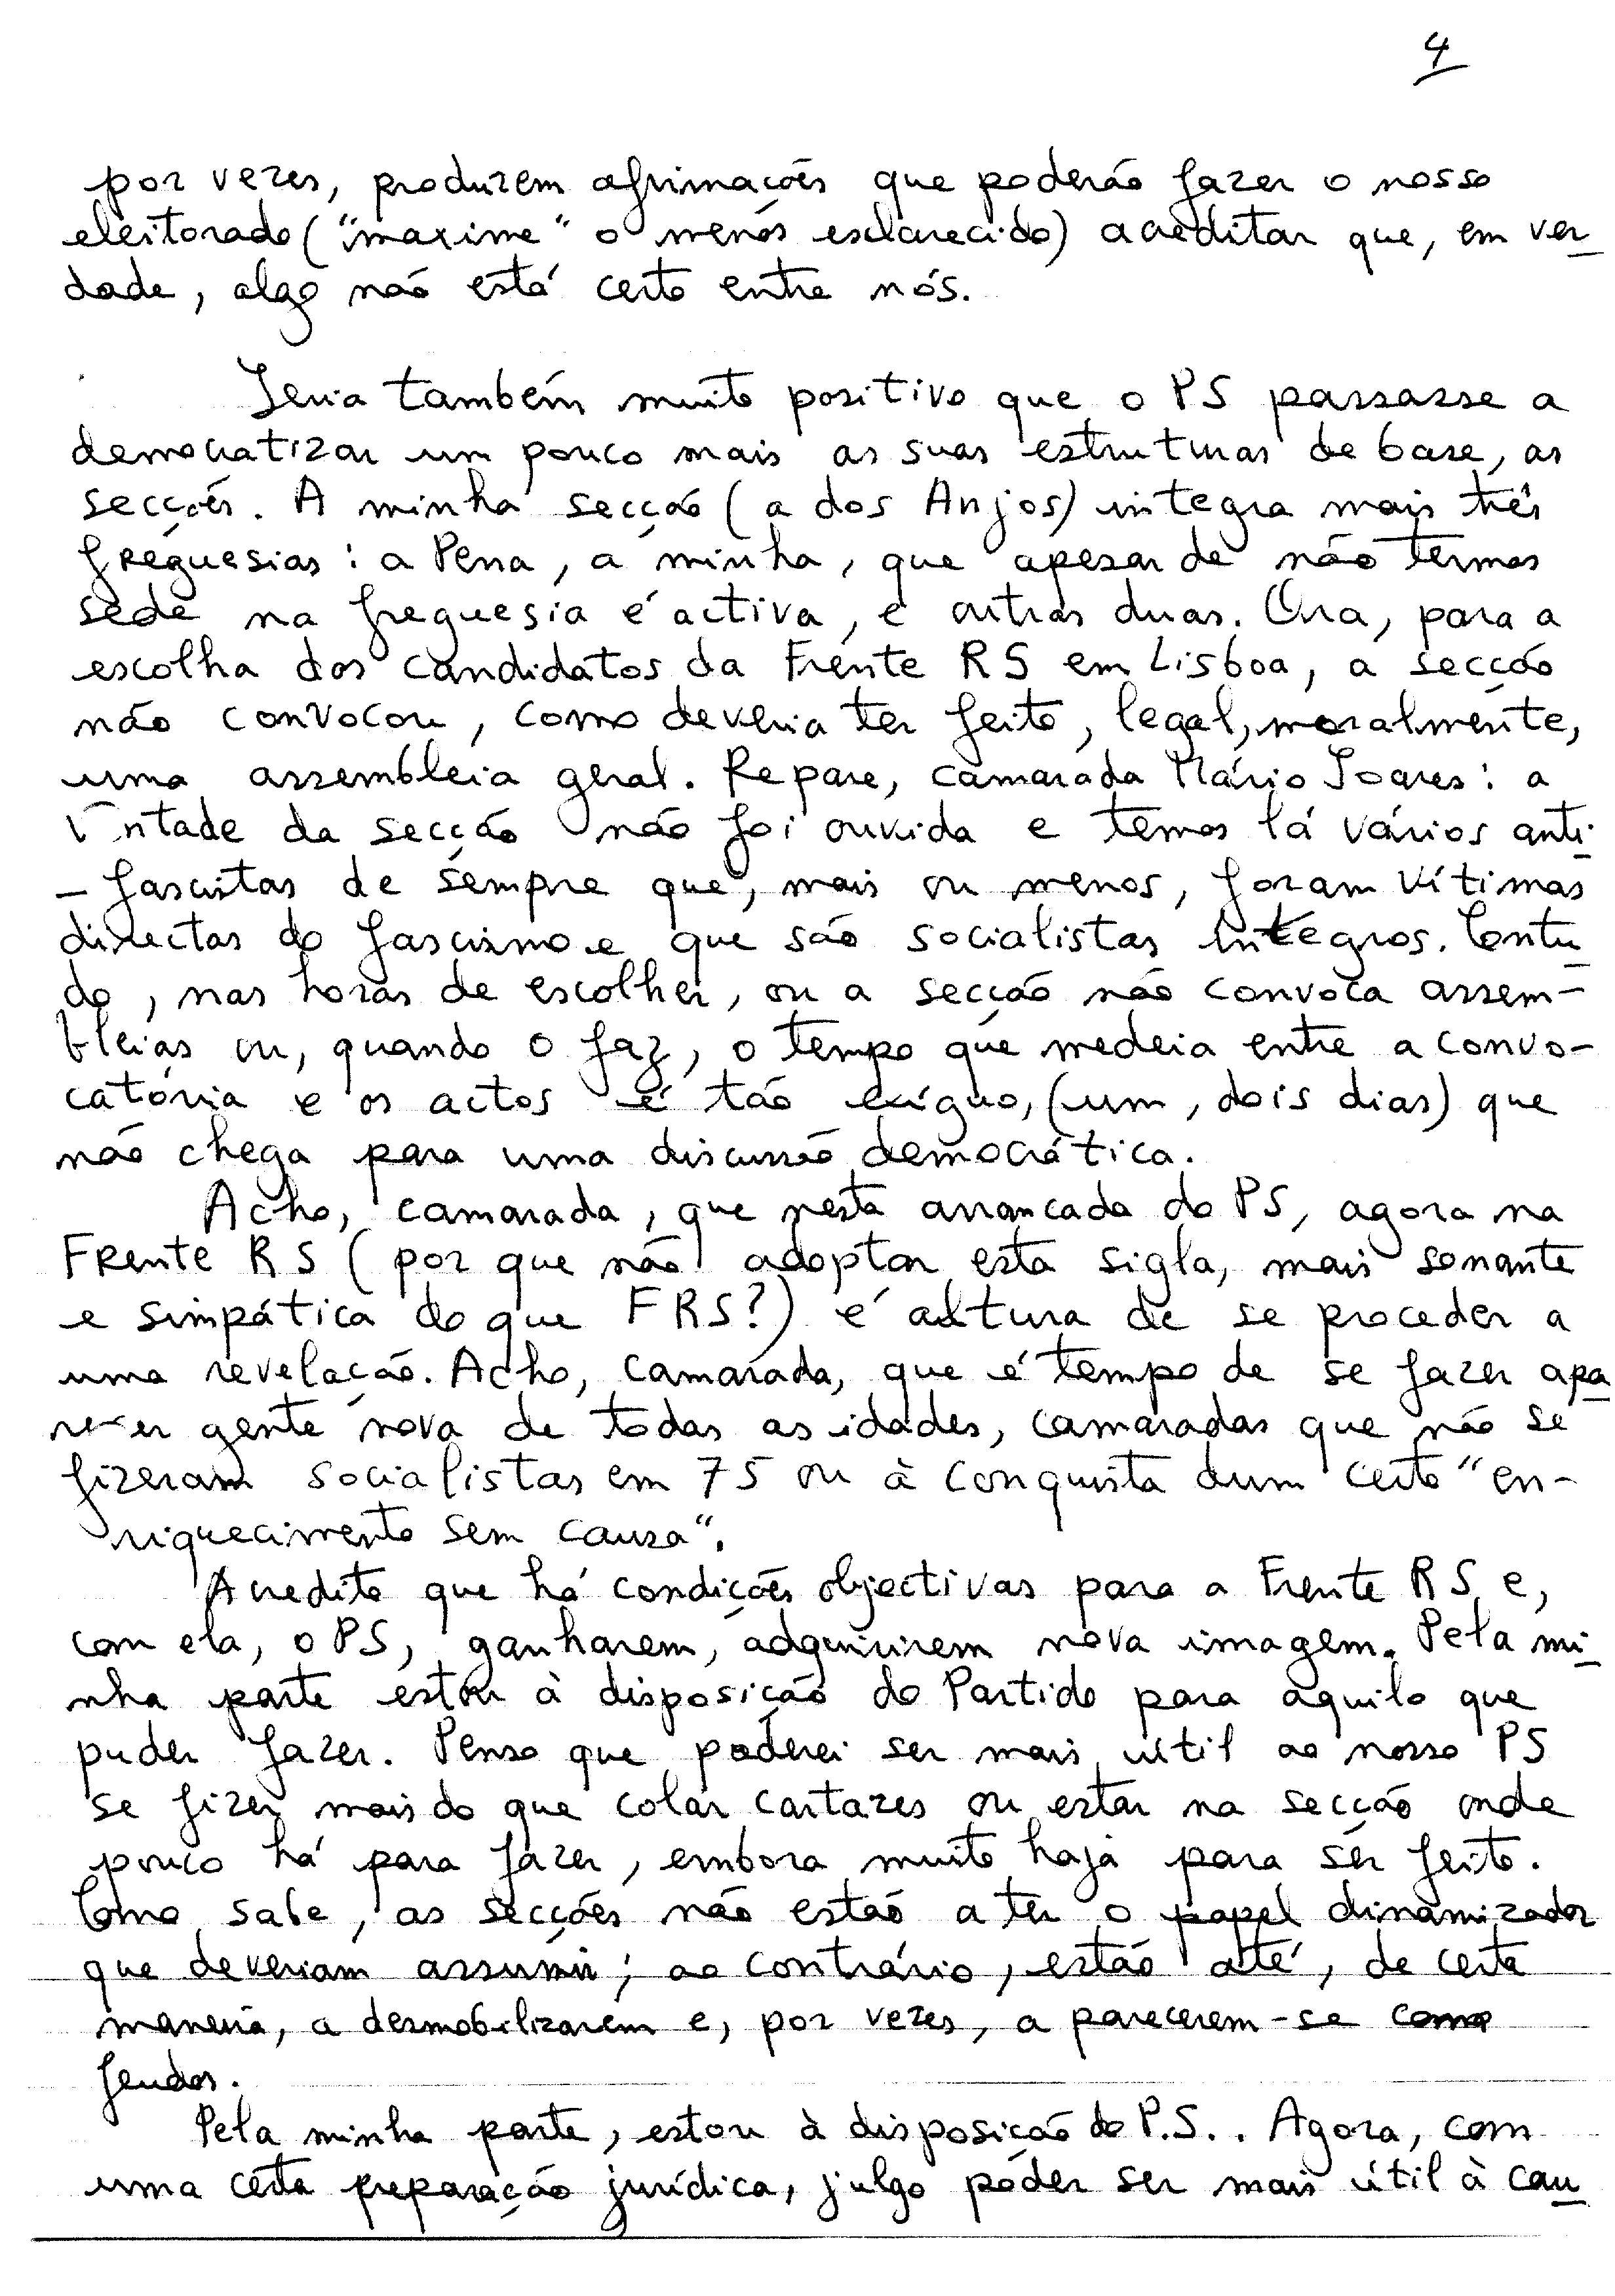 4
por vezes, produzem afirmações que poderão fazer o nosso
eleitorado ("maxime" o menos esclarecido) acreditar que, em ver
dade, algo não está certo entre nós.
Seria também muito positivo que o PS passasse a
democratizar um pouco mais as suas estruturas de base, as
secções. A minha secção (a dos Anjos) integra mais três
freguesias: a Pena, a minha, que apesar de não termos
sede na freguesia é activa, e outras duas. Ora, para a
escolha dos candidatos da Frente RS em Lisboa, a secção
não convocou, como deveria ter feito, legal, moralmente,
uma assembleia geral. Repare, camarada Mário Soares: a
vontade da secção não foi ouvida e temos lá vários anti-
-fascistas de sempre que, mais ou menos, foram vítimas
directas do fascismo e que são socialistas íntegros. Contu
do, nas horas de escolher, ou a secção não convoca assem-
bleias ou, quando o faz, o tempo que medeia entre a convo-
catória e os actos é tão exíguo, (um, dois dias) que
não chega para uma discussão democrática.
Acho, camarada, que nesta arrancada do PS, agora na
Frente RS (por que não adoptar esta sigla, mais sonante
e simpática do que FRS?) é altura de se proceder a
uma revelação. Acho, camarada, que é tempo de se fazer apa
recer gente nova de todas as idades, camaradas que não se
fizeram socialistas em 75 ou à conquista dum certo "en-
riquecimento sem causa".
Acredito que há condições objectivas para a Frente RS e,
com ela, o PS, ganharem, adquirirem nova imagem. Pela mi
nha parte estou à disposição do Partido para aquilo que
puder fazer. Penso que poderei ser mais útil ao nosso PS
se fizer mais do que colar cartazes ou estar na secção onde
pouco há para fazer, embora muito haja para ser feito.
Como sabe, as secções não estão a ter o papel dinamizador
que deveriam assumir; ao contrário, estão até, de certa
maneira, a desmobilizarem e, por vezes, a parecerem-se como
feudos.
Pela minha parte, estou à disposição do P.S.. Agora, com
uma certa preparação jurídica, julgo poder ser mais útil à cau